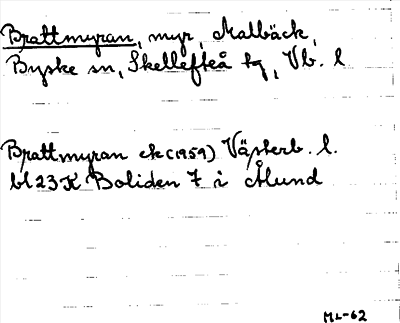 Brattmyran, myr, Malbäck,
Byske sn, Skellefteå kg, Vb. l
Brattmyran ek (1959) Västerb. l.
bl 23 K Boliden 7 i Ålund
ML-62